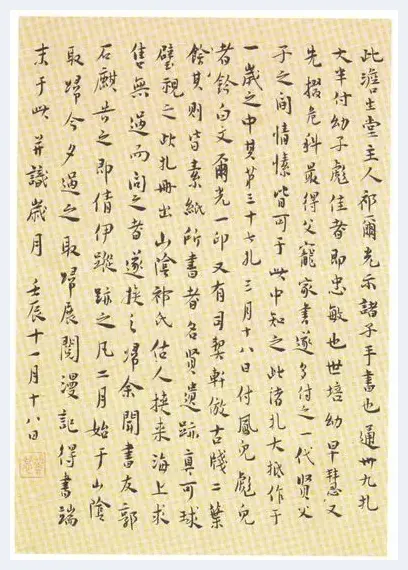 此澹生堂主人祁爾光示諸子手書也通卅九札
大半付幼子彪佳者即忠敏也世培幼早慧又
先擢危科最得父寵家書遂多付之一代賢父
子之間情愫皆可于此中知之此諸札大抵作于
一歲之中其第三十七札三月十八日付鳳兒彪兒
者鈐白文爾光一印又有司契軒倣古牋二葉
餘其則皆素紙所書者名賢遺跡真可球
璧視之此札冊出山陰祁氏估人挾来海上求
售無過而问之者遂挾之歸余聞書友郭
石麒告之即倩伊蹤跡之凡二月始于山陰
取歸今夕過之取歸展閱漫記得書端
末于此并識歲月 壬辰十一月十八日